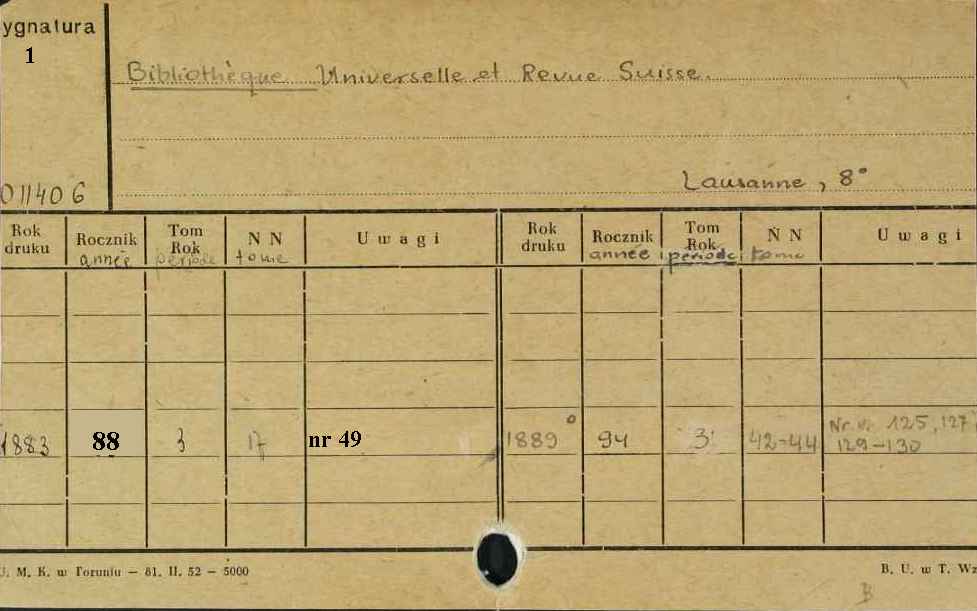 ygnatura
1
Bibliothèque Universelle et Revue Suisse.
Lausanne, 8°
011406
Rok druku Rocznik année Tom Rok période NN tome Uwagi Rok druku Rocznik année Tom Rok période NN tome Uwagi
1883 88 3 17 nr 49 1889 94 3 42-44 Nr. 125, 127
129-130
U. M. K. w Toruniu — 61. II. 52 — 5000 B. U. w T. Wz
B